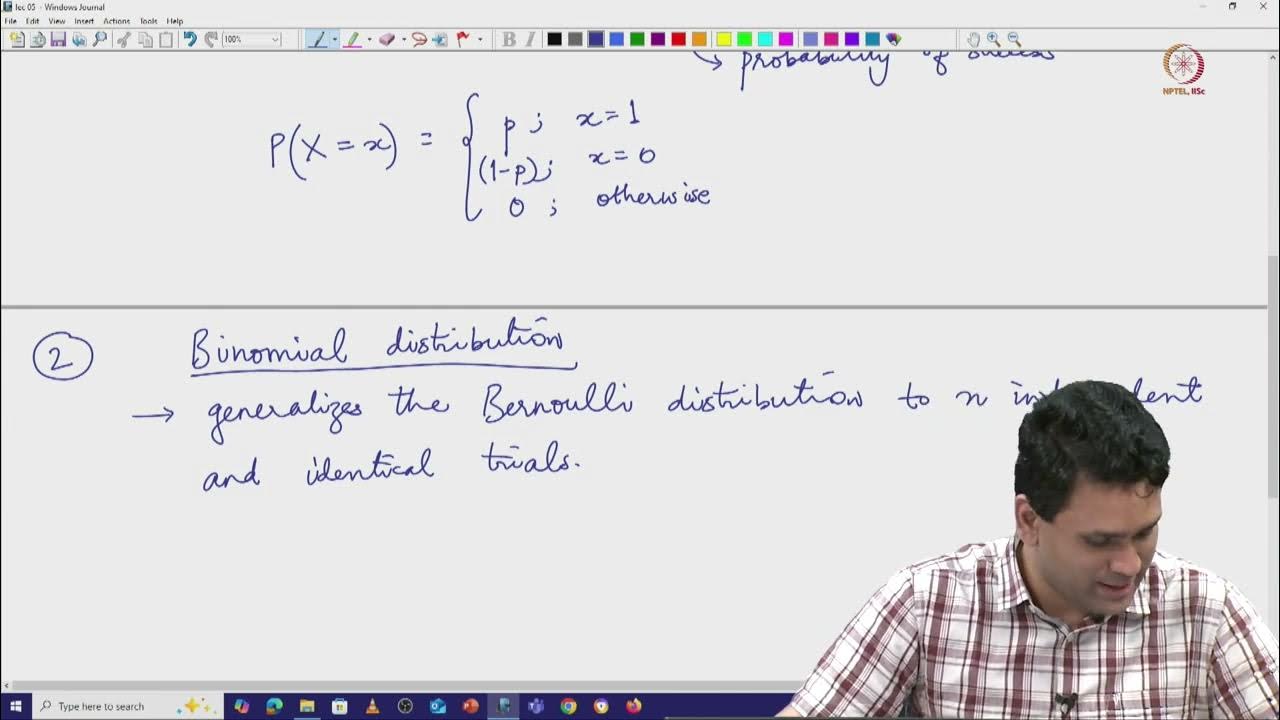 lec 05 - Windows Journal
File Edit View Insert Actions Tools Help
100% B I
↳ probability of success
NPTEL, IISc
P(X = x) = { p ; x = 1
(1-p) ; x = 0
0 ; otherwise
2 Binomial distribution
→ generalizes the Bernoulli distribution to n
and identical trials.
Type here to search